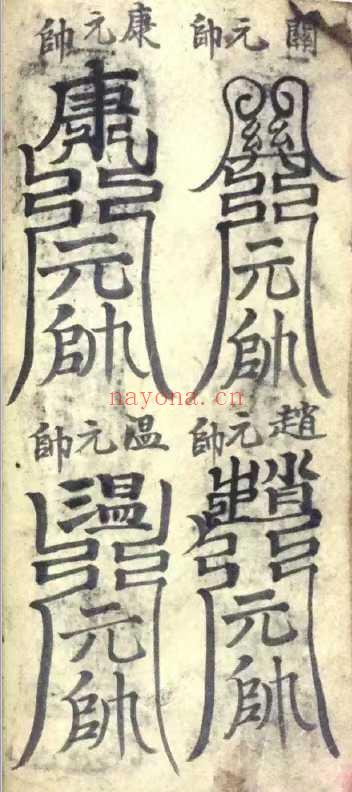 關元帥
元帥
康元帥
康
元帥
nayona.cn
趙元帥
趙
元帥
溫元帥
溫
元帥